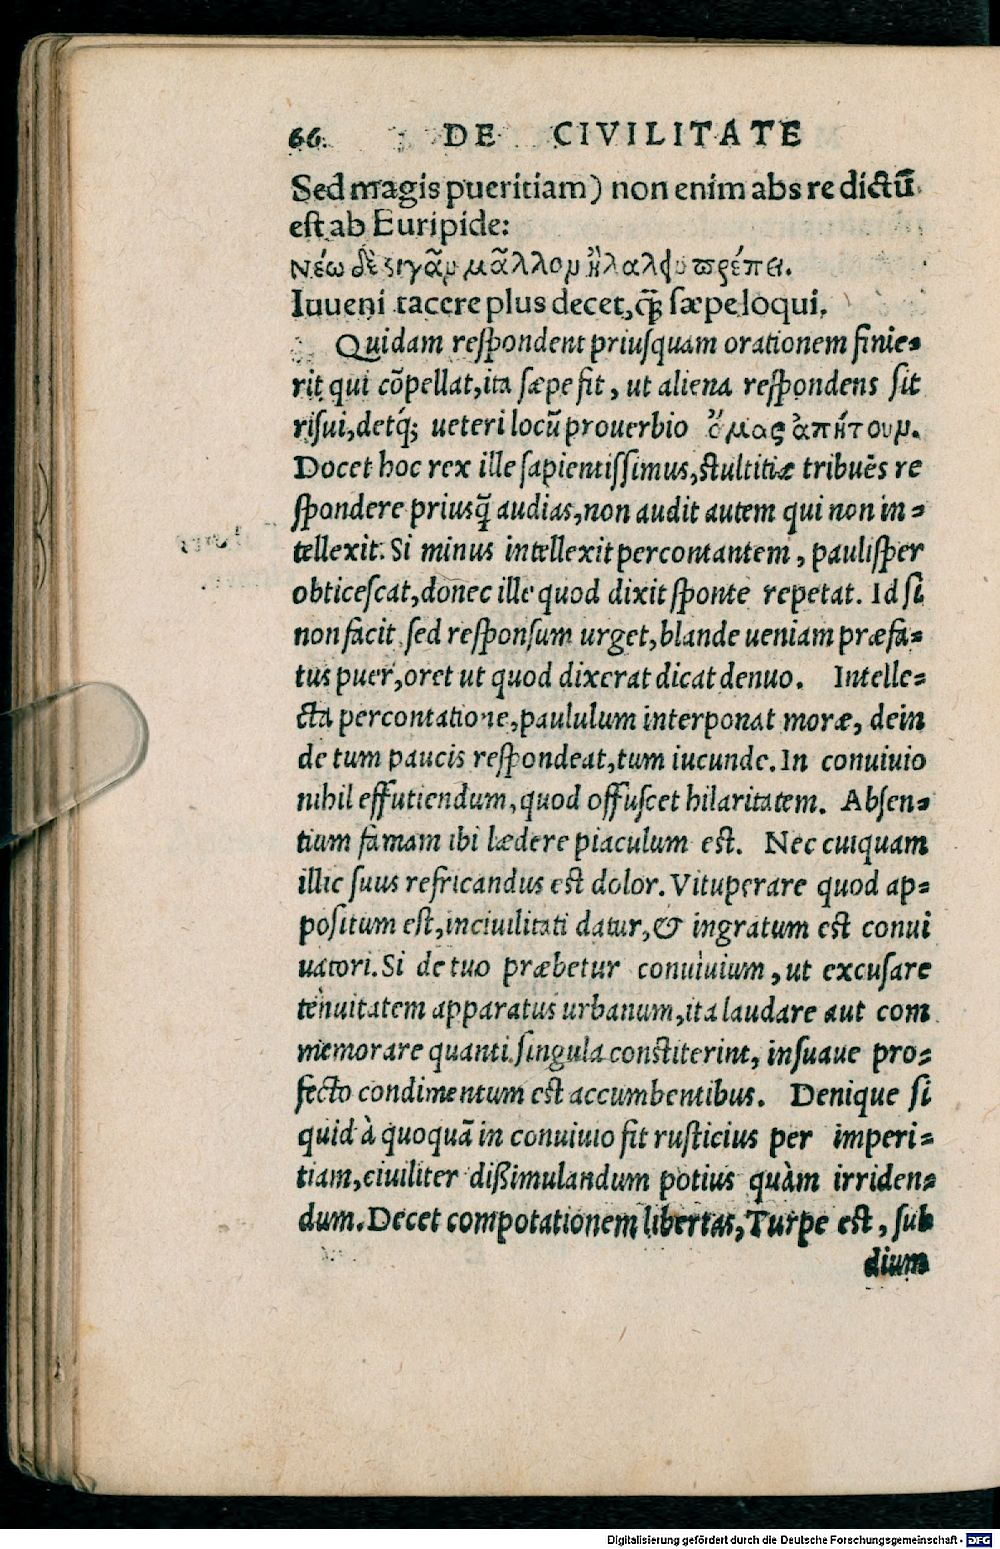 66. DE CIVILITATE
Sed magis pueritiam) non enim abs re dictũ
est ab Euripide:
Νέω δὲ σιγᾶν μᾶλλον ἢ λαλεῖν πρέπει.
Iuueni tacere plus decet, q̃ʒ sæpe loqui.
Quidam respondent priusquam orationem finie=
rit qui cõpellat, ita sæpe fit, ut aliena respondens sit
risui, detq́; ueteri locũ prouerbio ἄμας ἀπῄτουν.
Docet hoc rex ille sapientissimus, stultitiæ tribuẽs re
spondere priusq̃ audias, non audit autem qui non in=
tellexit. Si minus intellexit percontantem, paulisper
obticescat, donec ille quod dixit sponte repetat. Id si
non facit sed responsum urget, blande ueniam præfa=
tus puer, oret ut quod dixerat dicat denuo. Intelle=
cta percontatione, paululum interponat moræ, dein
de tum paucis respondeat, tum iucunde. In conuiuio
nihil effutiendum, quod offuscet hilaritatem. Absen=
tium famam ibi lædere piaculum est. Nec cuiquam
illic suus refricandus est dolor. Vituperare quod ap=
positum est, inciuilitati datur, & ingratum est conui
uatori. Si de tuo præbetur conuiuium, ut excusare
tenuitatem apparatus urbanum, ita laudare aut com
memorare quanti singula constiterint, insuaue pro=
fecto condimentum est accumbentibus. Denique si
quid à quoquã in conuiuio fit rusticius per imperi=
tiam, ciuiliter dißimulandum potius quàm irriden=
dum. Decet compotationem libertas, Turpe est, sub
dium
Digitalisierung gefördert durch die Deutsche Forschungsgemeinschaft - DFG